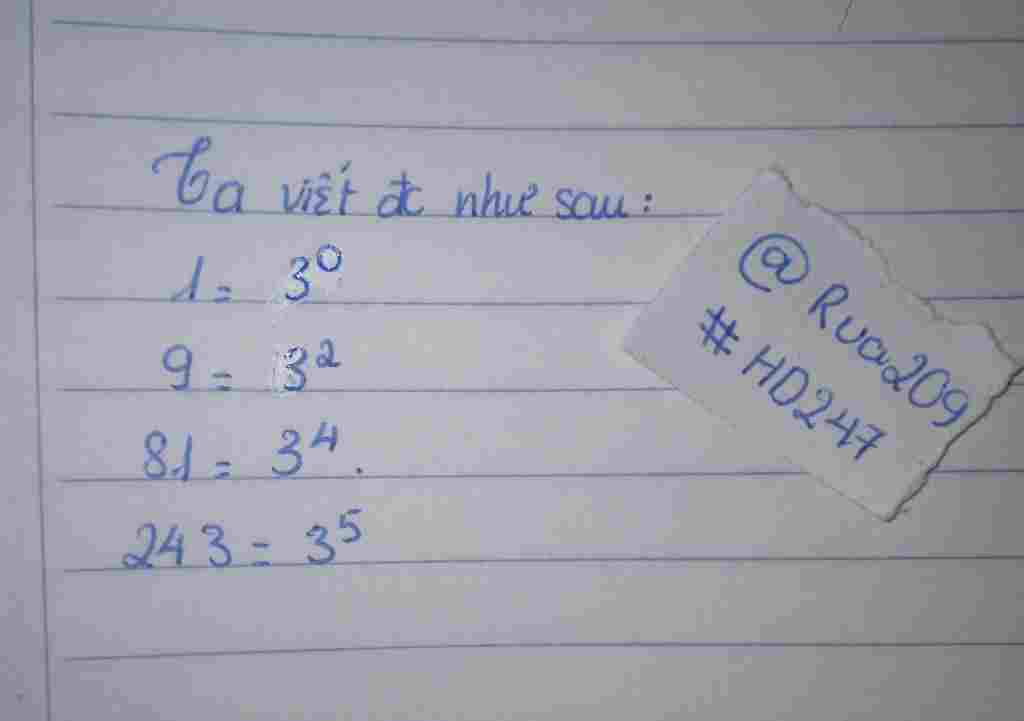 Ta viết đc như sau:
1 = 3⁰
9 = 3²
81 = 3⁴.
243 = 3⁵
@Rua209
#HD247